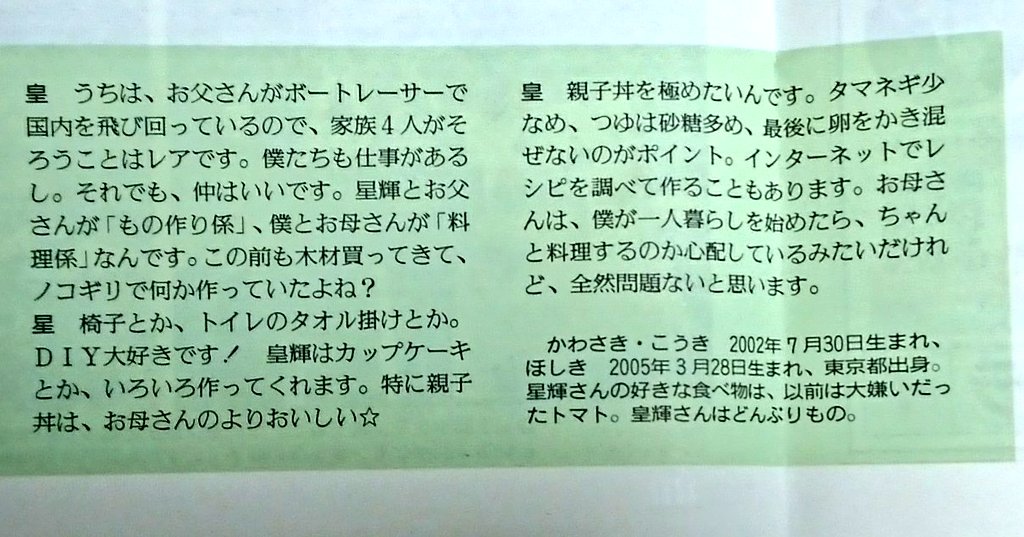 皇　うちは、お父さんがボートレーサーで
国内を飛び回っているので、家族４人がそ
ろうことはレアです。僕たちも仕事がある
し。それでも、仲はいいです。星輝とお父
さんが「もの作り係」、僕とお母さんが「料
理係」なんです。この前も木材買ってきて、
ノコギリで何か作っていたよね？
星　椅子とか、トイレのタオル掛けとか。
ＤＩＹ大好きです！　皇輝はカップケーキ
とか、いろいろ作ってくれます。特に親子
丼は、お母さんのよりおいしい☆
皇　親子丼を極めたいんです。タマネギ少
なめ、つゆは砂糖多め、最後に卵をかき混
ぜないのがポイント。インターネットでレ
シピを調べて作ることもあります。お母さ
んは、僕が一人暮らしを始めたら、ちゃん
と料理するのか心配しているみたいだけれ
ど、全然問題ないと思います。
かわさき・こうき　2002年７月30日生まれ、
ほしき　2005年３月28日生まれ、東京都出身。
星輝さんの好きな食べ物は、以前は大嫌いだっ
たトマト。皇輝さんはどんぶりもの。